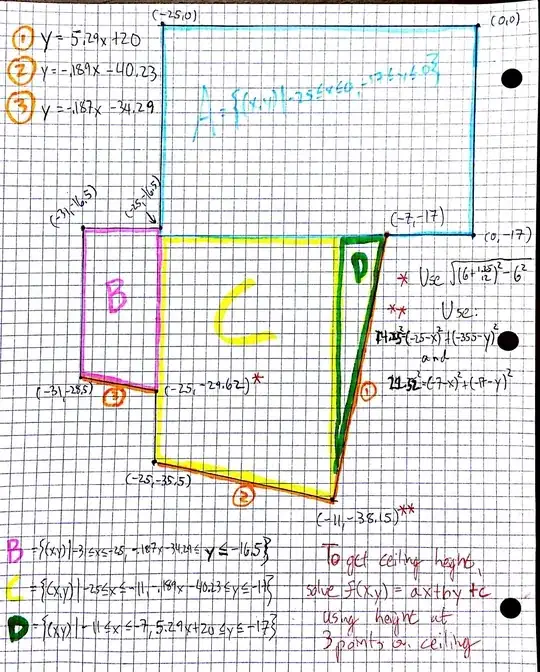 ① y = 5.29x + 20
② y = -.189x - 40.23
③ y = -.187x - 34.29
(-25,0)
(0,0)
A = {(x,y) | -25 ≤ x ≤ 0, -17 ≤ y ≤ 0}
(-31,-16.5)
(-25,-16.5)
(-7,-17)
(0,-17)
B
C
D
* Use √((6 + 1.25/12)² - 6²)
** Use:
24.25² = (-25-x)² + (-35.5-y)²
and
21.52² = (-7-x)² + (-17-y)²
①
(-31,-28.5)
③
(-25,-29.62)*
(-25,-35.5)
②
(-11,-38.15)**
B = {(x,y) | -31 ≤ x ≤ -25, -.187x - 34.29 ≤ y ≤ -16.5}
C = {(x,y) | -25 ≤ x ≤ -11, -.189x - 40.23 ≤ y ≤ -17}
D = {(x,y) | -11 ≤ x ≤ -7, 5.29x + 20 ≤ y ≤ -17}
To get ceiling height,
solve f(x,y) = ax + by + c
using height at
3 points on ceiling